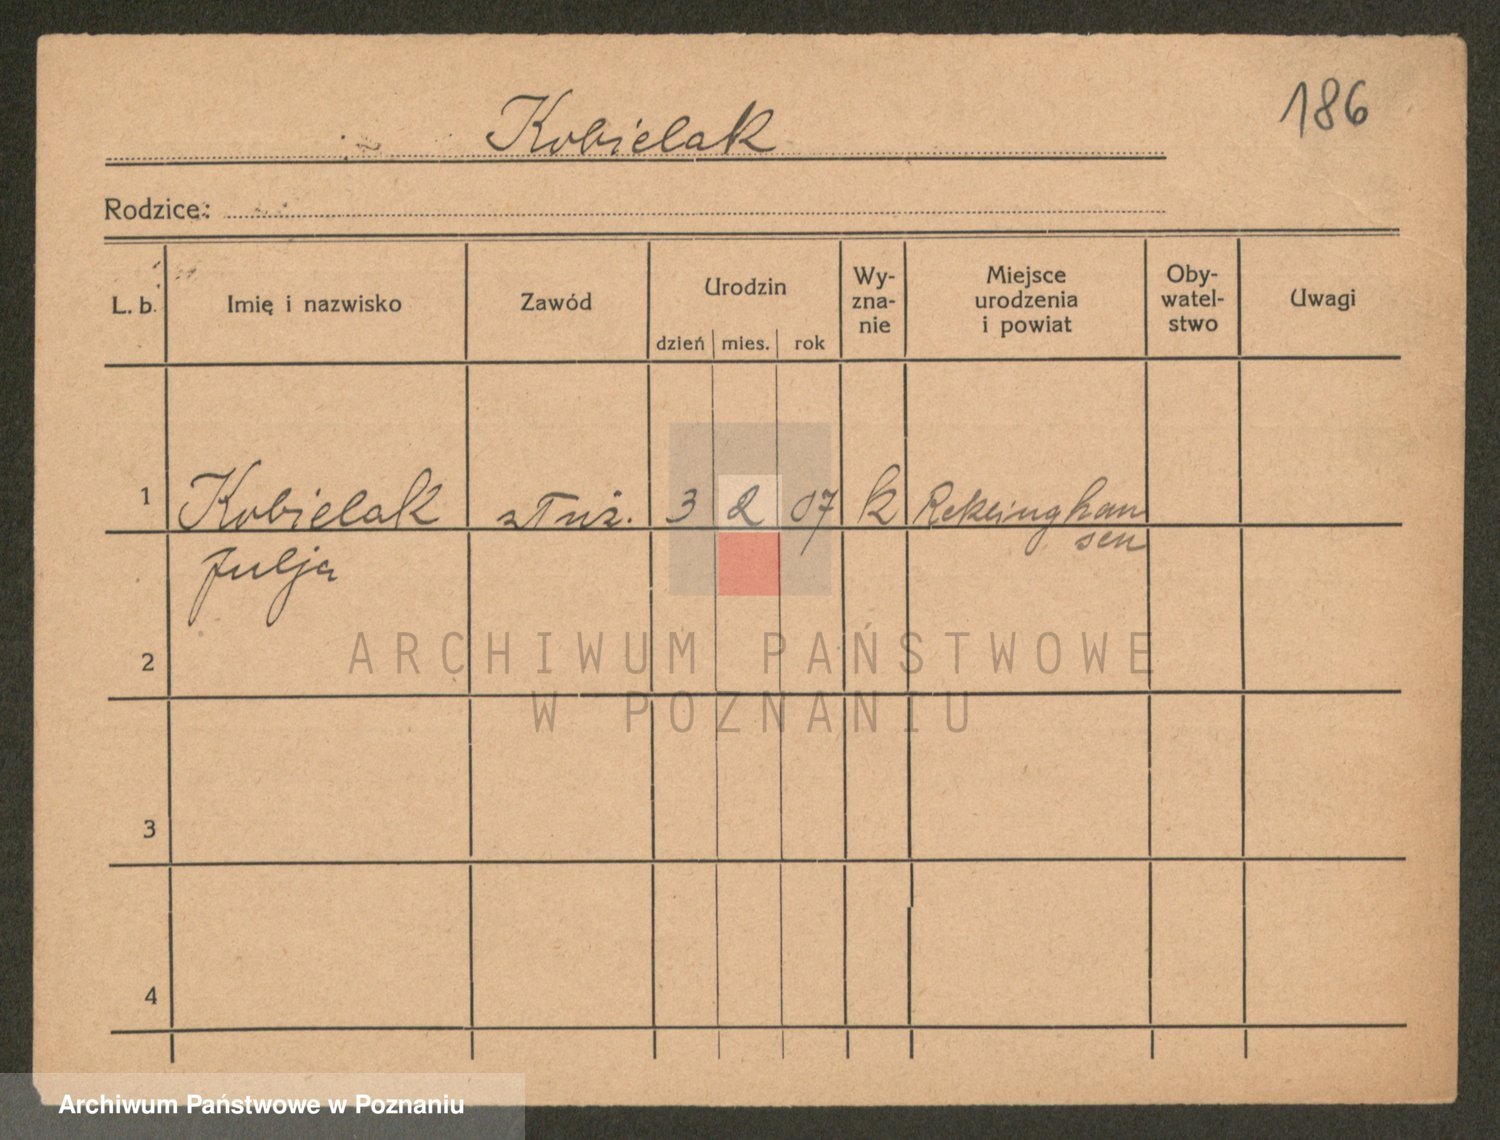 186
Kobielak
Rodzice:
L. b.
Imię i nazwisko
Zawód
Urodzin
dzień mies. rok
Wy-
zna-
nie
Miejsce
urodzenia
i powiat
Oby-
watel-
stwo
Uwagi
1 Kobielak służ. 3 2 07 k Rekling hau
sen
Julja
2
3
4
ARCHIWUM PAŃSTWOWE
W POZNANIU
Archiwum Państwowe w Poznaniu